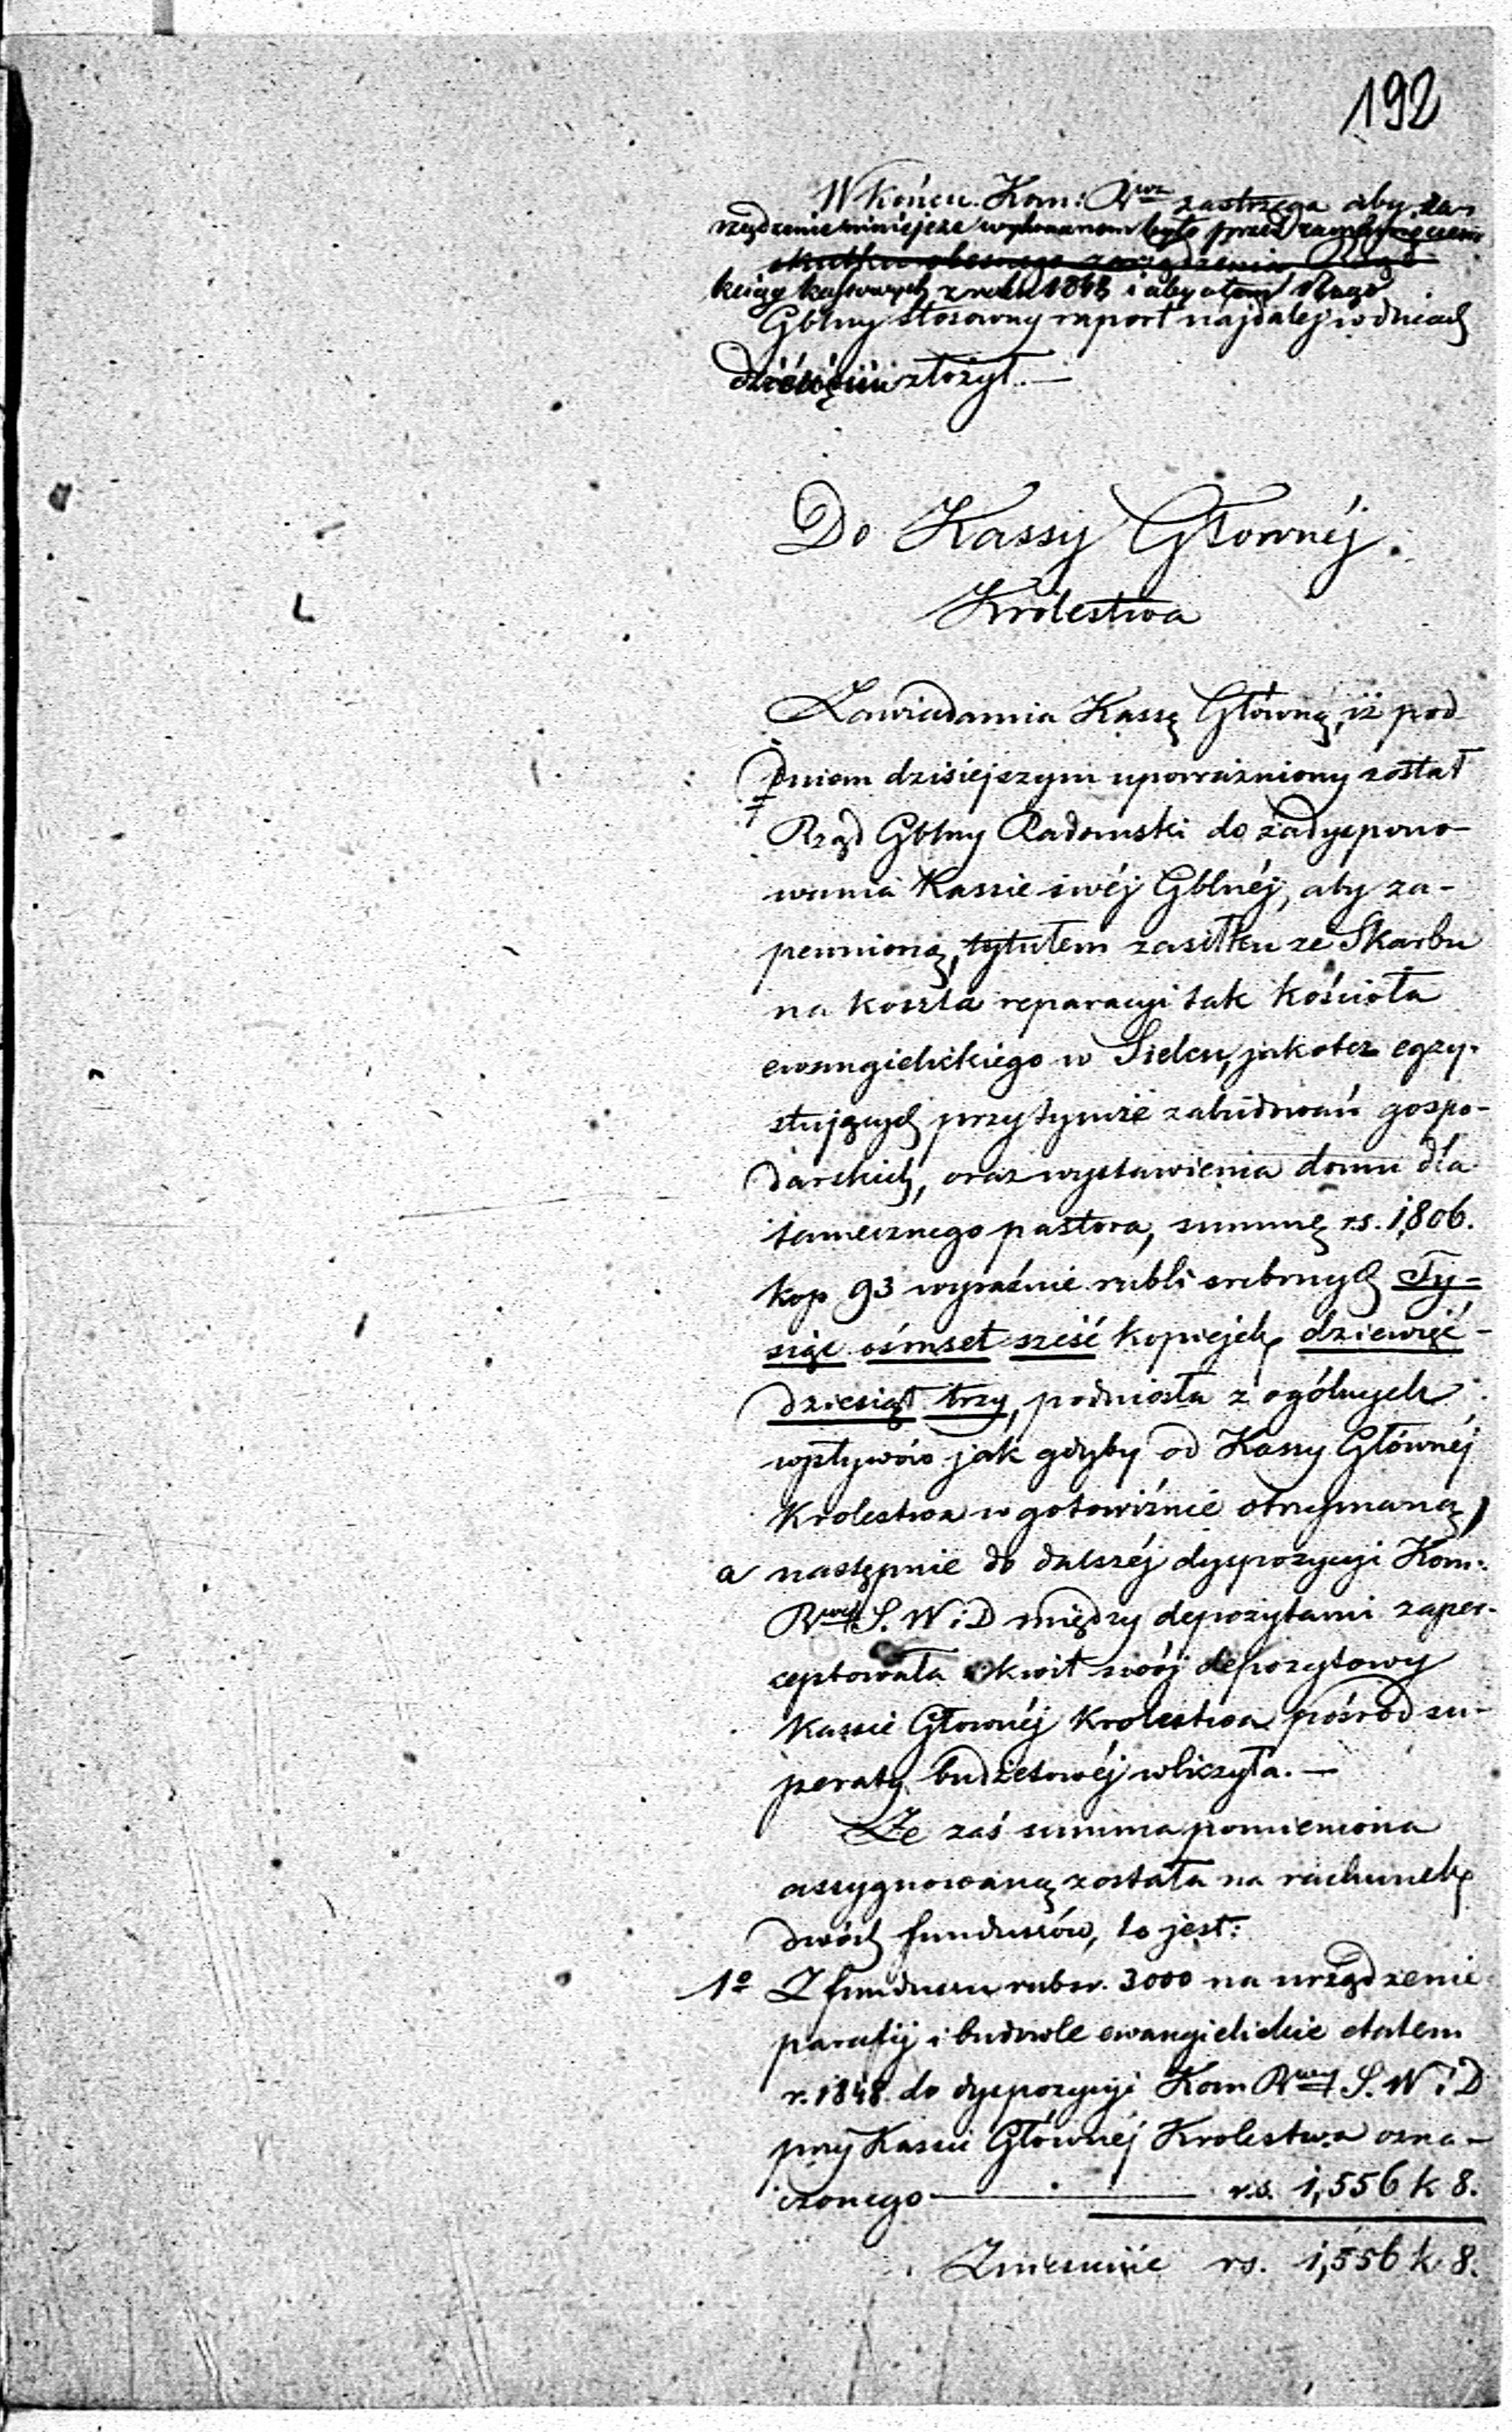 192
W końcu Kom: Rwa zastrzega aby za-
rządzenie niniejsze wykonanem było przed zamknięciem
skutku obecnego zarządzenia Rząd
ksiąg kassowych z roku 1848 i aby o tem Rząd
Gblny stosowny raport najdalej w dniach
dziesięciu złożył. —
Do Kassy Głownéj
Królestwa
Zawiadamia Kassę Główną, iż pod
dniem dzisiejszym upoważniony został
Rząd Gblny Radomski do zadyspono-
wania Kassie swéj Gblnéj, aby za-
pewnioną, tytułem zasiłku ze Skarbu
na koszta reparacyi tak kościoła
ewangielickiego w Sielcu, jakoteż egzy-
stujących przytymże zabudowań gospo-
darskich, oraz wystawienia domu dla
tamecznego pastora, summę rs. 1,806.
kop 93 wyraźnie rubli srebrnych Ty-
siąc ośmset sześć kopiejek dziewięć-
dziesiąt trzy, podniosła z ogólnych
wpływów jak gdyby od Kassy Głównéj
Krolestwa w gotowiźnie otrzymaną,
a następnie do dalszéj dyspozycyi Kom:
Rwej S. W i D między depozytami zaper-
ceptowała i kwit swój depozytowy
Kassie Głownéj Krolestwa pośród su-
peraty budżetowéj wliczyła. —
Że zaś summa pomieniona
assygnowaną została na rachunek
dwóch funduszów, to jest:
1o Z funduszu rubsr. 3000 na urządzenie
parafij i budowle ewangielickie etatem
r. 1848 do dyspozycyi Kom Rwej S. W i D
przy Kassie Głównéj Krolestwa ozna-
czonego — rs. 1,556 k 8.
Zniesienie rs. 1,556 k. 8.